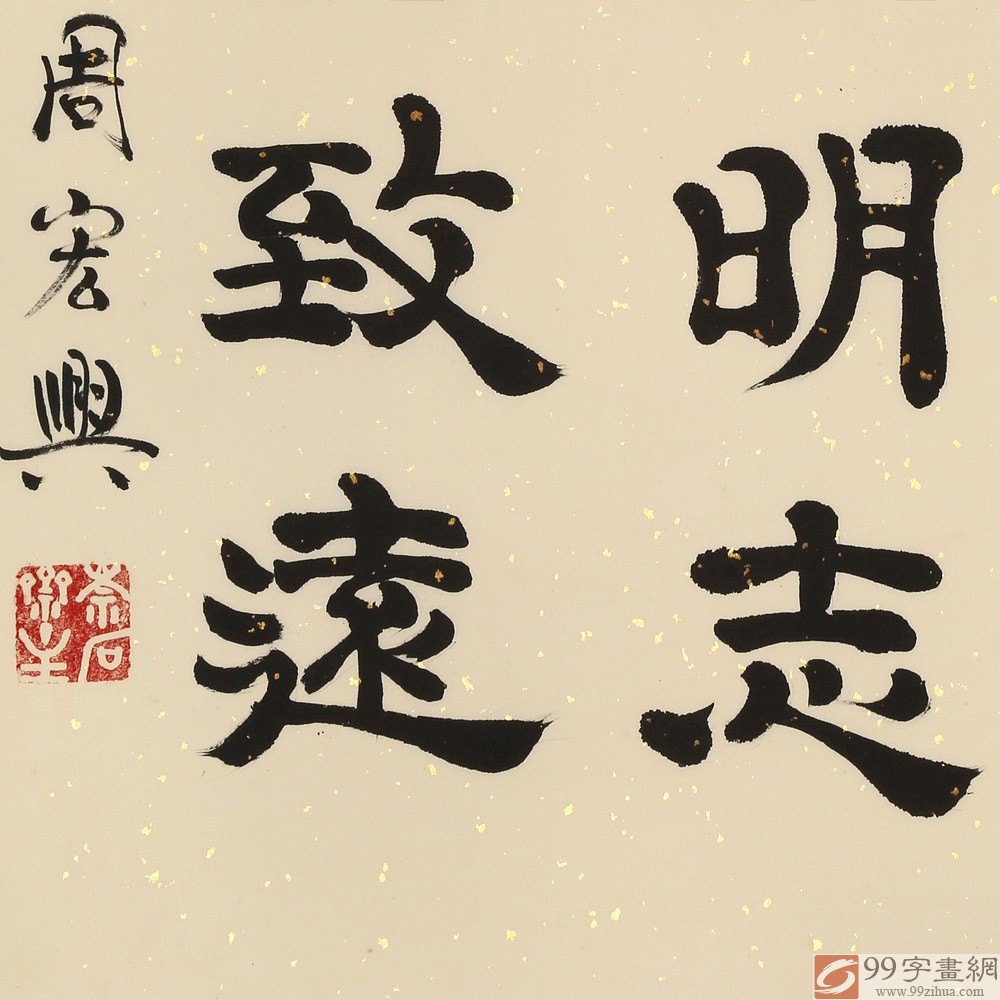 明志
致遠
周宏興
99字畫網
www.99zihua.com